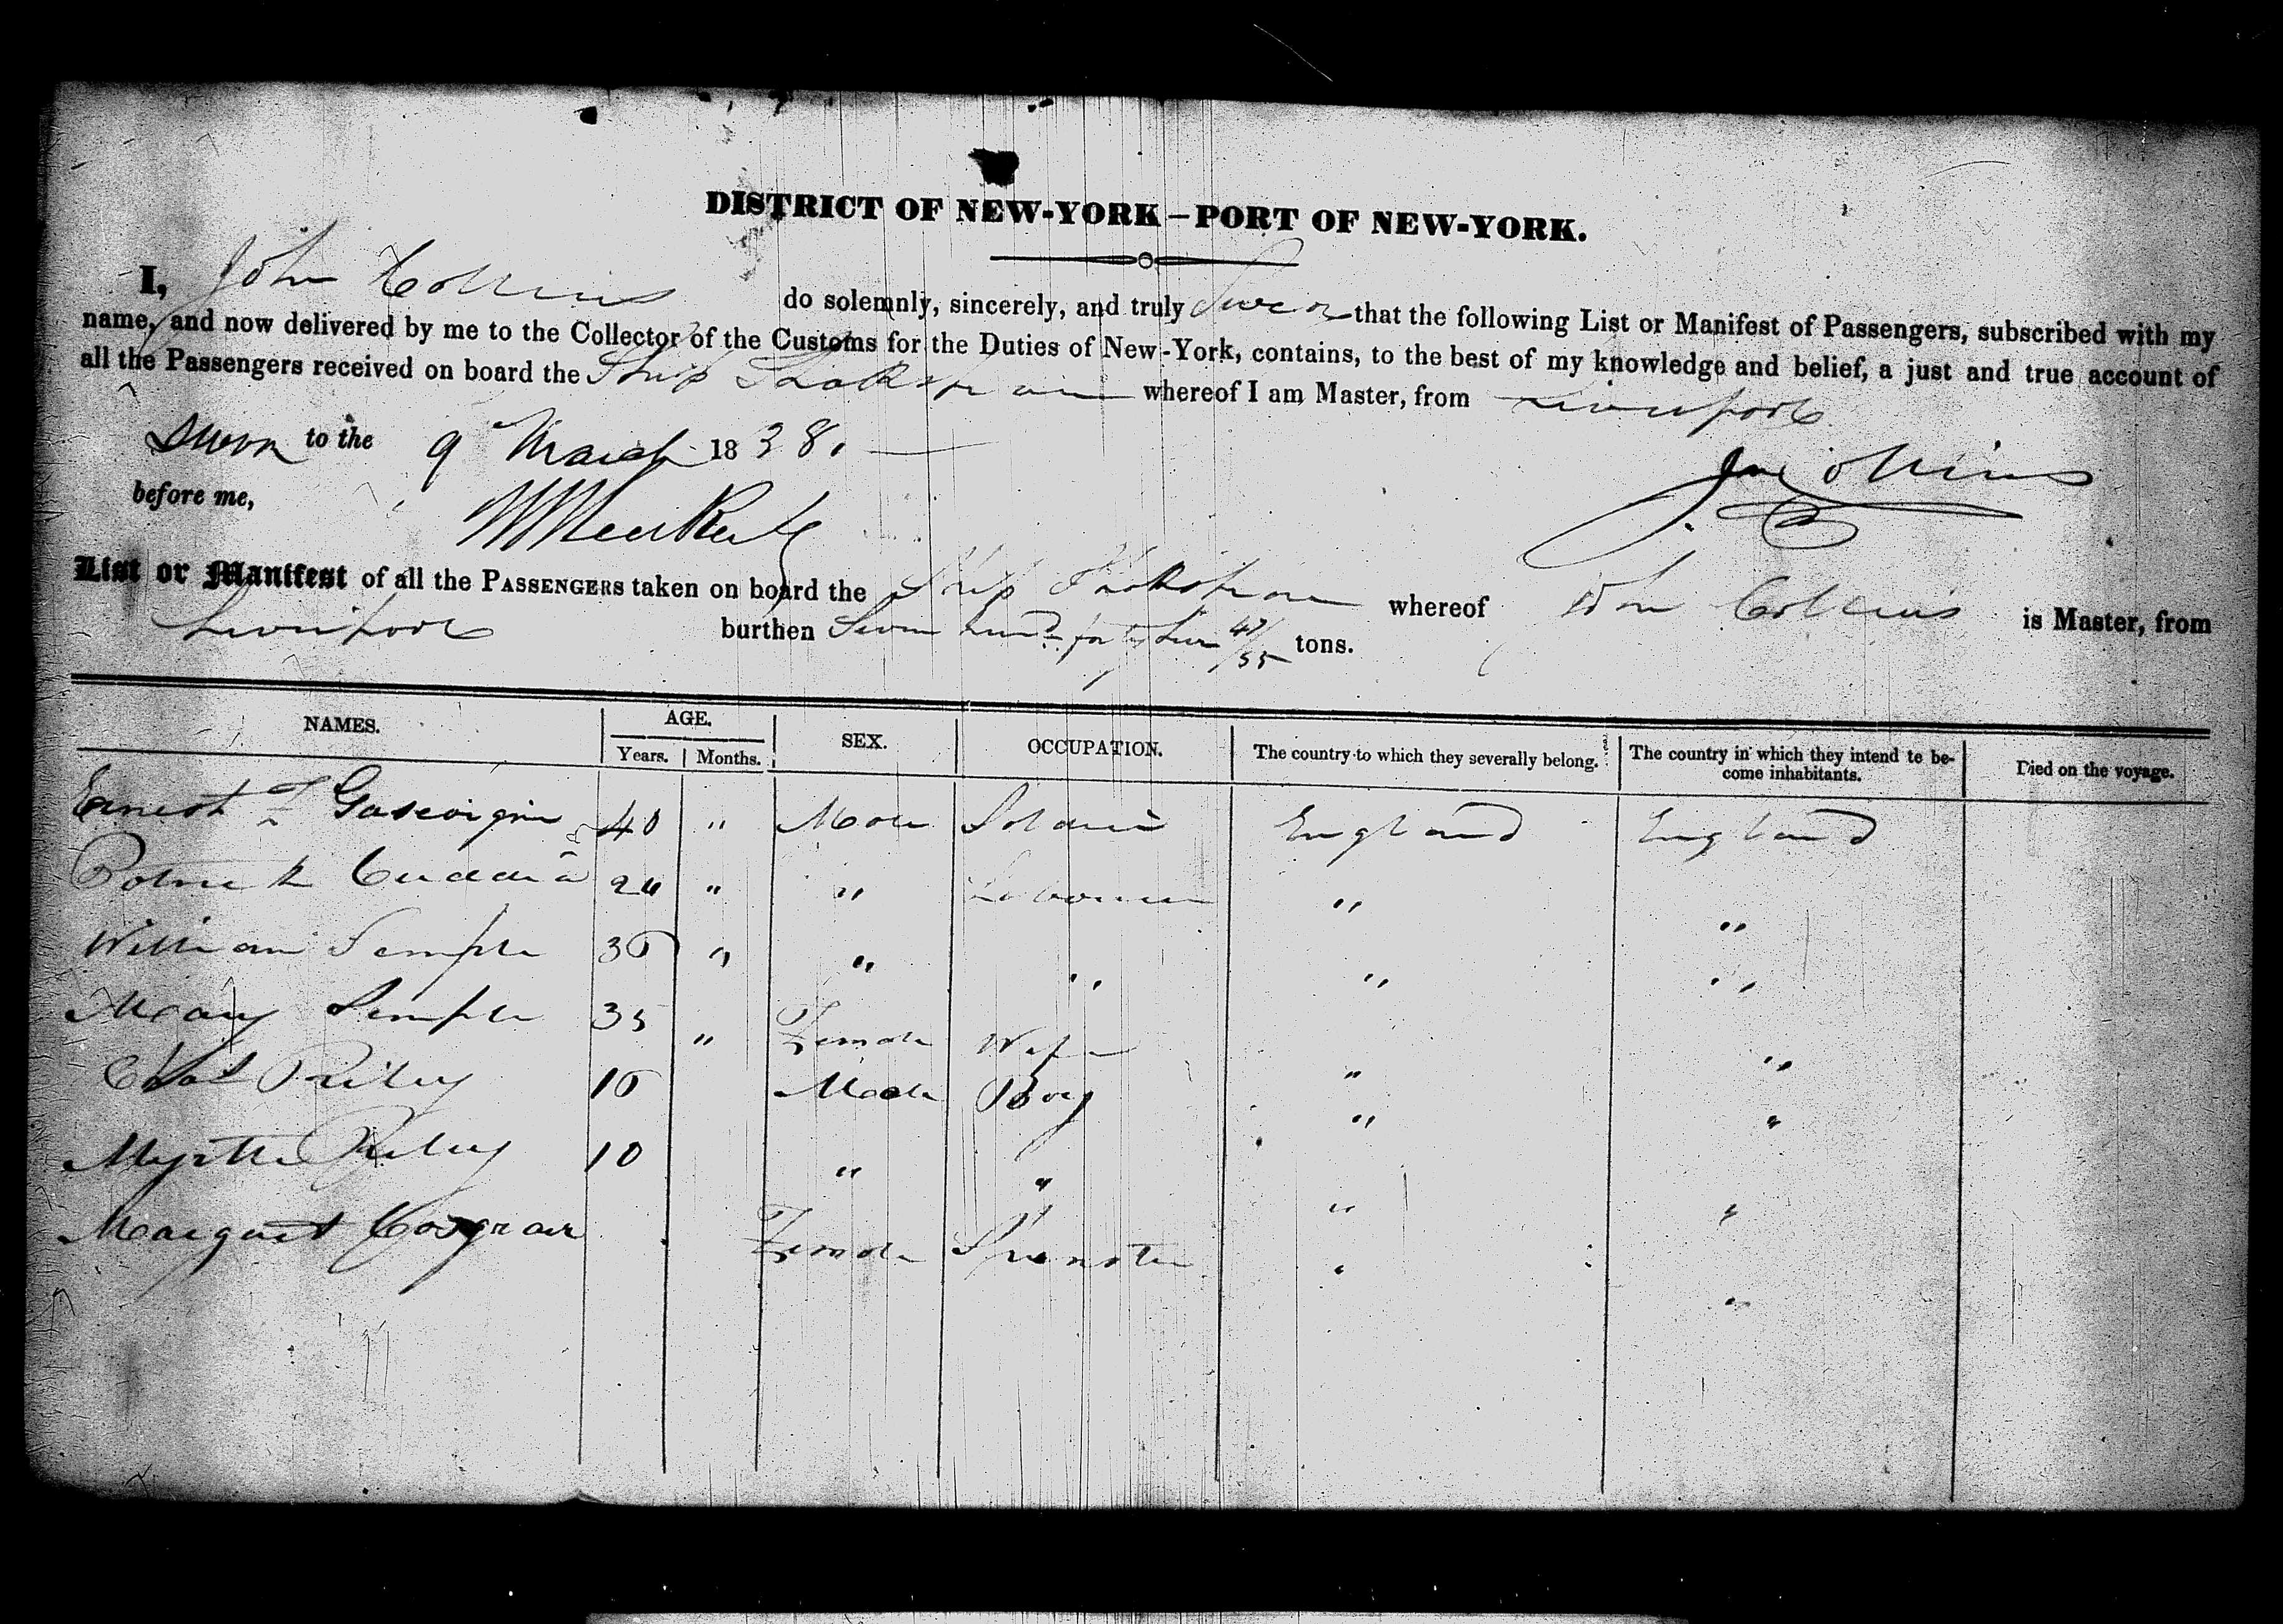 DISTRICT OF NEW-YORK—PORT OF NEW-YORK.
I, John Collins do solemnly, sincerely, and truly Swear that the following List or Manifest of Passengers, subscribed with my
name, and now delivered by me to the Collector of the Customs for the Duties of New-York, contains, to the best of my knowledge and belief, a just and true account of
all the Passengers received on board the Ship Shakspeare whereof I am Master, from Liverpool
Sworn to the 9 March 1838. Jno Collins
before me,
List or Manifest of all the PASSENGERS taken on board the Ship Shakspeare whereof John Collins is Master, from
Liverpool burthen Seven hund forty tons.
NAMES. AGE. SEX. OCCUPATION. The country to which they severally belong. The country in which they intend to be-
come inhabitants. Died on the voyage.
Years. Months.
Ernest F Gascoigne 40 " Male Soldier England England
Patrick 24 " " Labourer " "
William Semple 30 " " " " "
Mary Semple 35 " Female Wife " "
Riley 10 Male Boy " "
Riley 10 " " " "
Margaret Cosgrave Female Spinster " "